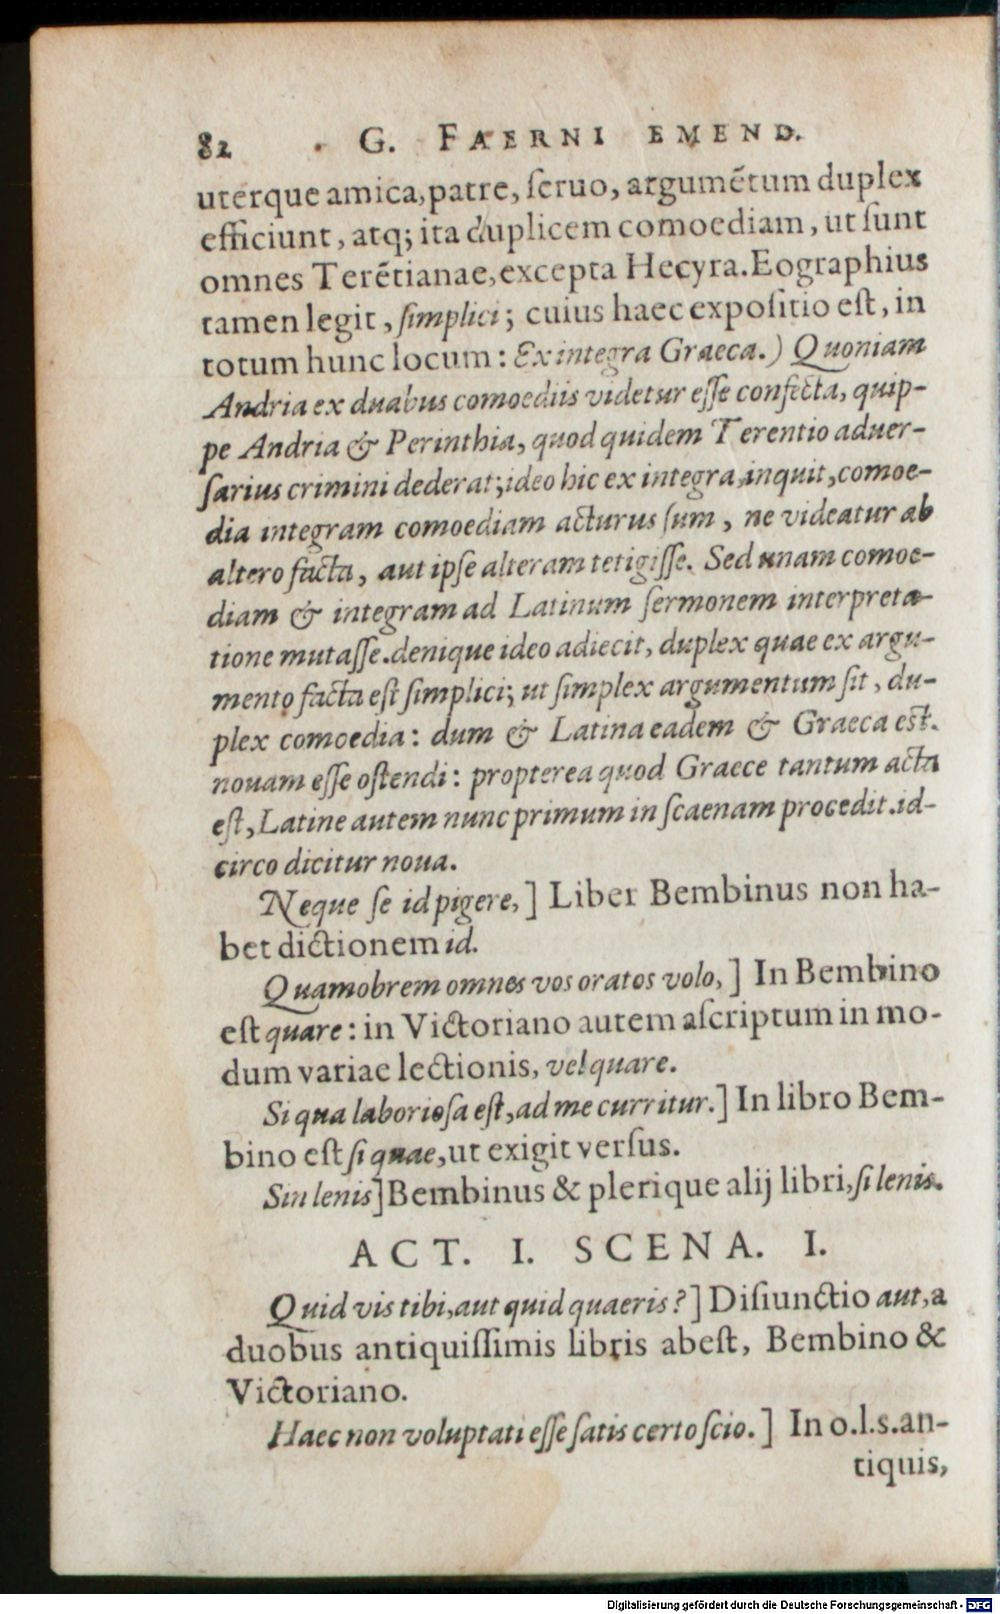 82 G. FAERNI EMEND.
uterque amica, patre, ſeruo, argumẽtum duplex
efficiunt, atq; ita duplicem comoediam, ut ſunt
omnes Terẽtianae, excepta Hecyra. Eographius
tamen legit, ſimplici; cuius haec expoſitio eſt, in
totum hunc locum: Ex integra Graeca.) Quoniam
Andria ex duabus comoediis videtur eſſe confecta, quip-
pe Andria & Perinthia, quod quidem Terentio aduer-
ſarius crimini dederat; ideo hic ex integra, inquit, comoe-
dia integram comoediam acturus ſum, ne videatur ab
altero facta, aut ipſe alteram tetigiſſe. Sed unam comoe-
diam & integram ad Latinum ſermonem interpreta-
tione mutaſſe. denique ideo adiecit, duplex quae ex argu-
mento facta eſt ſimplici; ut ſimplex argumentum ſit, du-
plex comoedia: dum & Latina eadem & Graeca eſt.
nouam eſſe oſtendi: propterea quod Graece tantum acta
eſt, Latine autem nunc primum in ſcaenam procedit. id-
circo dicitur noua.
Neque ſe id pigere,] Liber Bembinus non ha-
bet dictionem id.
Quamobrem omnes vos oratos volo,] In Bembino
eſt quare: in Victoriano autem aſcriptum in mo-
dum variae lectionis, vel quare.
Si qua laborioſa eſt, ad me curritur.] In libro Bem-
bino eſt ſi quae, ut exigit verſus.
Sin lenis] Bembinus & plerique alij libri, ſi lenis.
ACT. I. SCENA. I.
Quid vis tibi, aut quid quaeris?] Diſiunctio aut, a
duobus antiquiſſimis libris abeſt, Bembino &
Victoriano.
Haec non voluptati eſſe ſatis certo ſcio.] In o.l.s. an-
tiquis,
Digitalisierung gefördert durch die Deutsche Forschungsgemeinschaft - DFG